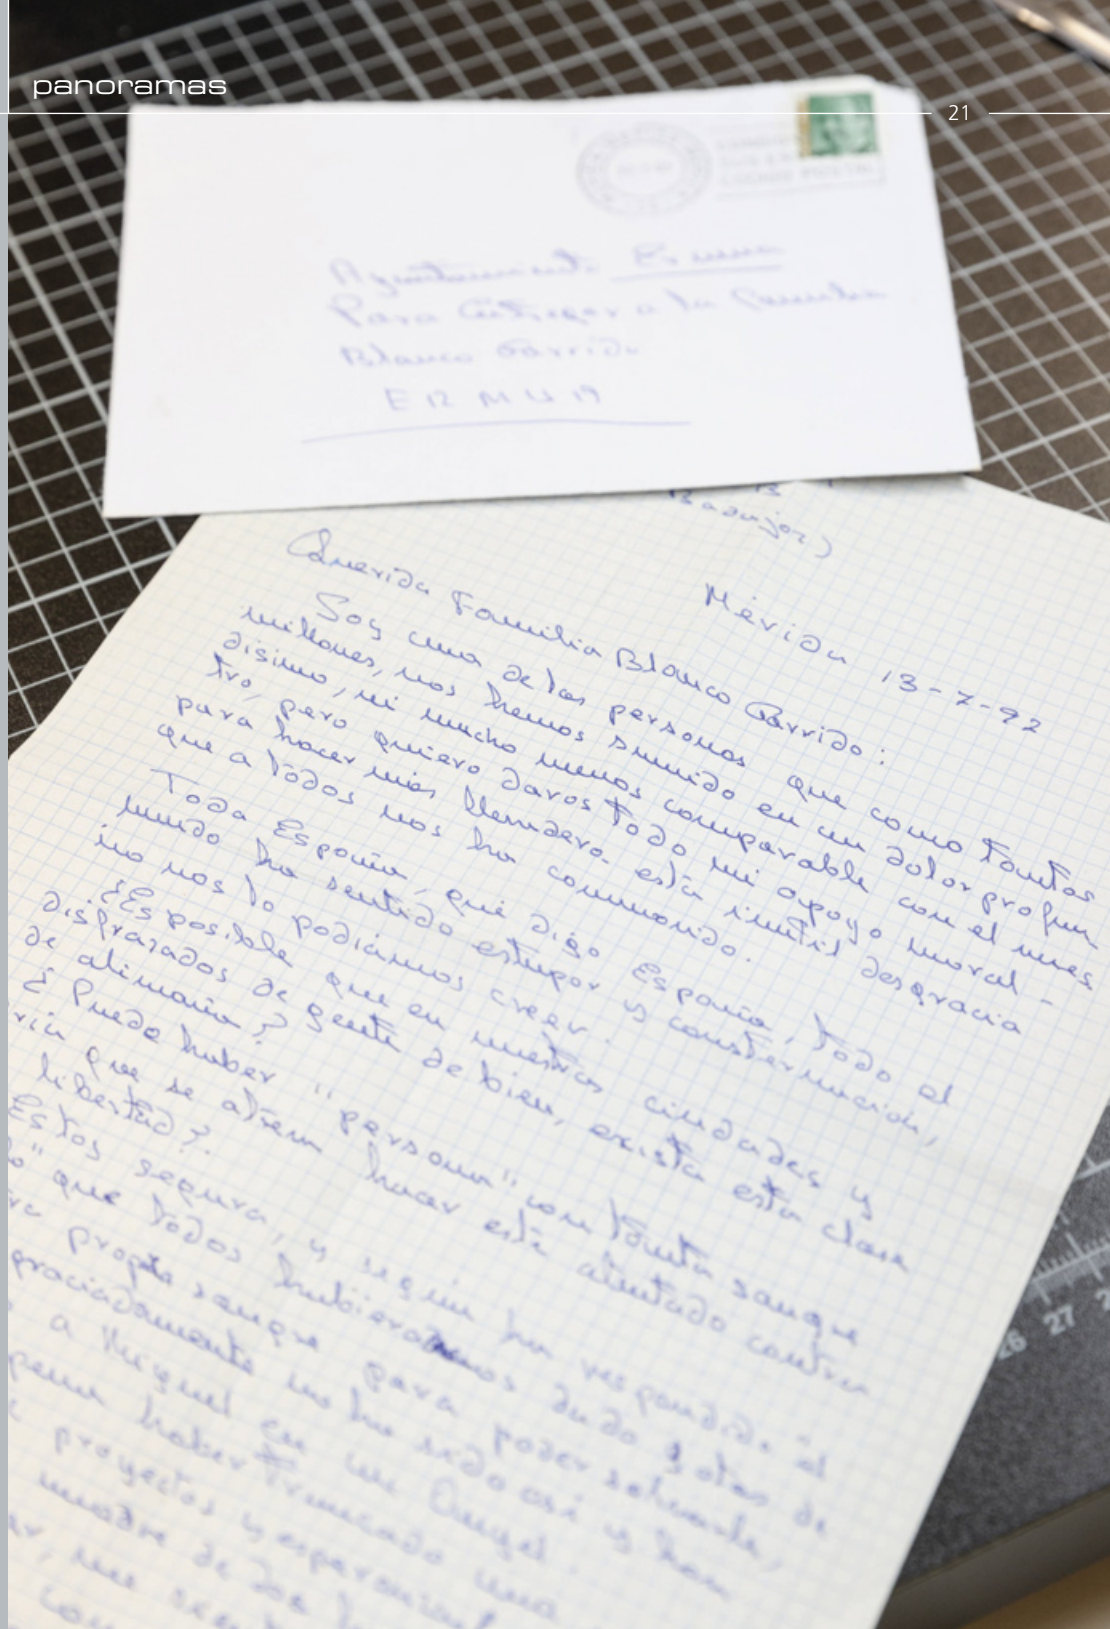 panoramas
21
Ayuntamiento Ermua
Para Entregar a la familia
Blanco Garrido
E R M U A
Badajoz)
Mérida 13-7-97
Querida Familia Blanco Garrido:
Soy una de las personas que como tantos
millones, nos hemos sumido en un dolor profun
disimo, ni mucho menos comparable con el vues
tro, pero quiero daros todo mi apoyo moral -
para hacer más llevadero esta inutil desgracia
que a todos nos ha conmovido.
Toda España, qué digo España, todo el
mundo ha sentido estupor y consternación,
no nos lo podíamos creer.
¿Es posible que en nuestras ciudades y
disfrazados de gente de bien, exista esta clase
de alimaña?
¿Puede haber "persona" con tanta sangre
que se atreva hacer este atentado contra
libertad?.
Estoy segura, y según ha respondido el
que todos hubieramos dado gotas de
propia sangre para poder salvarle,
graciadamente no ha sido así y han
a Miguel en un Angel.
pena haber truncado una
proyectos y esperanzas
madre de dos